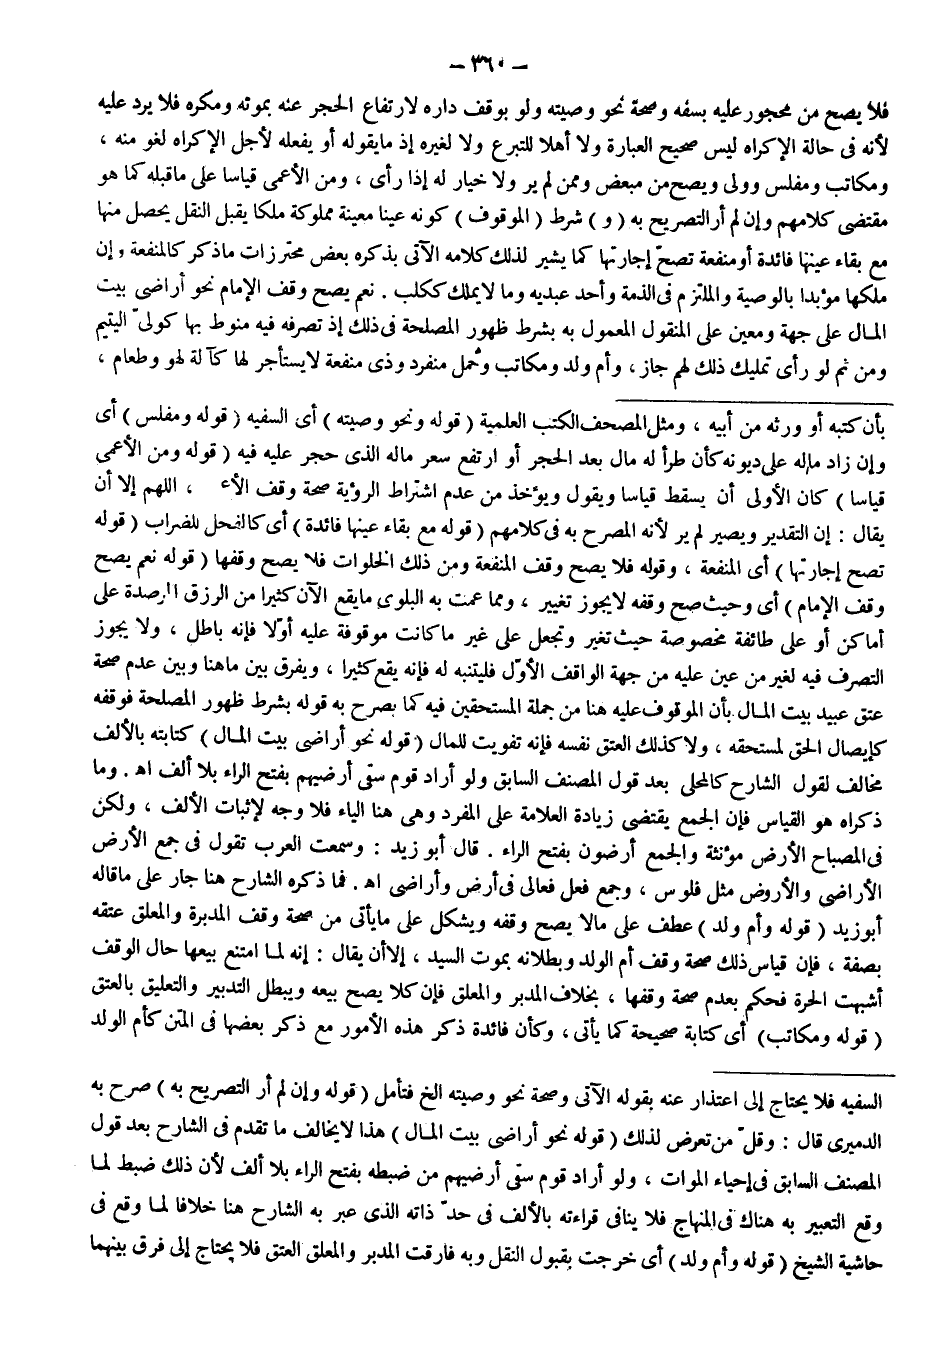 – ٣٦٠ –
فلا يصح من محجور عليه بسفه وصحة نحو وصيته ولو بوقف داره لارتفاع الحجر عنه بموته ومكره فلا يرد عليه
لأنه فى حالة الإكراه ليس صحيح العبارة ولا أهلا للتبرع ولا لغيره إذ مايقوله أو يفعله لأجل الإكراه لغو منه ،
ومكاتب ومفلس وولى ويصح من مبعض وممن لم ير ولا خيار له إذا رأى ، ومن الأعمى قياسا على ماقبله كما هو
مقتضى كلامهم وإن لم أر التصريح به ( و ) شرط ( الموقوف ) كونه عينا معينة مملوكة ملكا يقبل النقل يحصل منها
مع بقاء عينها فائدة أو منفعة تصحّ إجارتها كما يشير لذلك كلامه الآتى بذكره بعض محترزات ماذكر كالمنفعة وإن
ملكها مؤبدا بالوصية والملتزم فى الذمة وأحد عبديه وما لايملك ككلب . نعم يصح وقف الإمام نحو أراضى بيت
المال على جهة ومعين على المنقول المعمول به بشرط ظهور المصلحة فى ذلك إذ تصرفه فيه منوط بها كولىّ اليتيم
ومن ثم لو رأى تمليك ذلك لهم جاز ، وأم ولد ومكاتب وحمل منفرد وذى منفعة لايستأجر لها كآلة لهو وطعام ،
بأن كتبه أو ورثه من أبيه ، ومثل المصحف الكتب العلمية ( قوله ونحو وصيته ) أى السفيه ( قوله ومفلس ) أى
وإن زاد ماله على ديونه كأن طرأ له مال بعد الحجر أو ارتفع سعر ماله الذى حجر عليه فيه ( قوله ومن الأعمى
قياسا ) كان الأولى أن يسقط قياسا ويقول ويؤخذ من عدم اشتراط الرؤية صحة وقف الأع ، اللهم إلا أن
يقال : إن التقدير ويصير لم ير لأنه المصرح به فى كلامهم ( قوله مع بقاء عينها فائدة ) أى كالفحل للضراب ( قوله
تصح إجارتها ) أى المنفعة ، وقوله فلا يصح وقف المنفعة ومن ذلك الخلوات فلا يصح وقفها ( قوله نعم يصح
وقف الإمام ) أى وحيث صح وقفه لايجوز تغيير ، ومما عمت به البلوى مايقع الآن كثيرا من الرزق المرصدة على
أماكن أو على طائفة مخصوصة حيث تغير وتجعل على غير ماكانت موقوفة عليه أوّلا فإنه باطل ، ولا يجوز
التصرف فيه لغير من عين عليه من جهة الواقف الأوّل فليتنبه له فإنه يقع كثيرا ، ويفرق بين ماهنا وبين عدم صحة
عتق عبيد بيت المال بأن الموقوف عليه هنا من جملة المستحقين فيه كما يصرح به قوله بشرط ظهور المصلحة فوقفه
كإيصال الحق لمستحقه ، ولا كذلك العتق نفسه فإنه تفويت للمال ( قوله نحو أراضى بيت المال ) كتابته بالألف
مخالف لقول الشارح كالمحلى بعد قول المصنف السابق ولو أراد قوم سقى أرضيهم بفتح الراء بلا ألف اه . وما
ذكراه هو القياس فإن الجمع يقتضى زيادة العلامة على المفرد وهى هنا الياء فلا وجه لإثبات الألف ، ولكن
فى المصباح الأرض مؤنثة والجمع أرضون بفتح الراء . قال أبو زيد : وسمعت العرب تقول فى جمع الأرض
الأراضى والأروض مثل فلوس ، وجمع فعل فعالى فى أرض وأراضى اه . فما ذكره الشارح هنا جار على ماقاله
أبو زيد ( قوله وأم ولد ) عطف على مالا يصح وقفه ويشكل على مايأتى من صحة وقف المدبرة والمعلق عتقه
بصفة ، فإن قياس ذلك صحة وقف أم الولد وبطلانه بموت السيد ، إلا أن يقال : إنه لما امتنع بيعها حال الوقف
أشبهت الحرة فحكم بعدم صحة وقفها ، بخلاف المدبر والمعلق فإن كلا يصح بيعه ويبطل التدبير والتعليق بالعتق
( قوله ومكاتب ) أى كتابة صحيحة كما يأتى ، وكأن فائدة ذكر هذه الأمور مع ذكر بعضها فى المتن كأم الولد
السفيه فلا يحتاج إلى اعتذار عنه بقوله الآتى وصحة نحو وصيته الخ فتأمل ( قوله وإن لم أر التصريح به ) صرح به
الدميرى قال : وقلّ من تعرض لذلك ( قوله نحو أراضى بيت المال ) هذا لايخالف ما تقدم فى الشارح بعد قول
المصنف السابق فى إحياء الموات ، ولو أراد قوم سقى أرضيهم من ضبطه بفتح الراء بلا ألف لأن ذلك ضبط لما
وقع التعبير به هناك فى المنهاج فلا ينافى قراءته بالألف فى حدّ ذاته الذى عبر به الشارح هنا خلافا لما وقع فى
حاشية الشيخ ( قوله وأم ولد ) أى خرجت بقبول النقل وبه فارقت المدبر والمعلق العتق فلا يحتاج إلى فرق بينهما